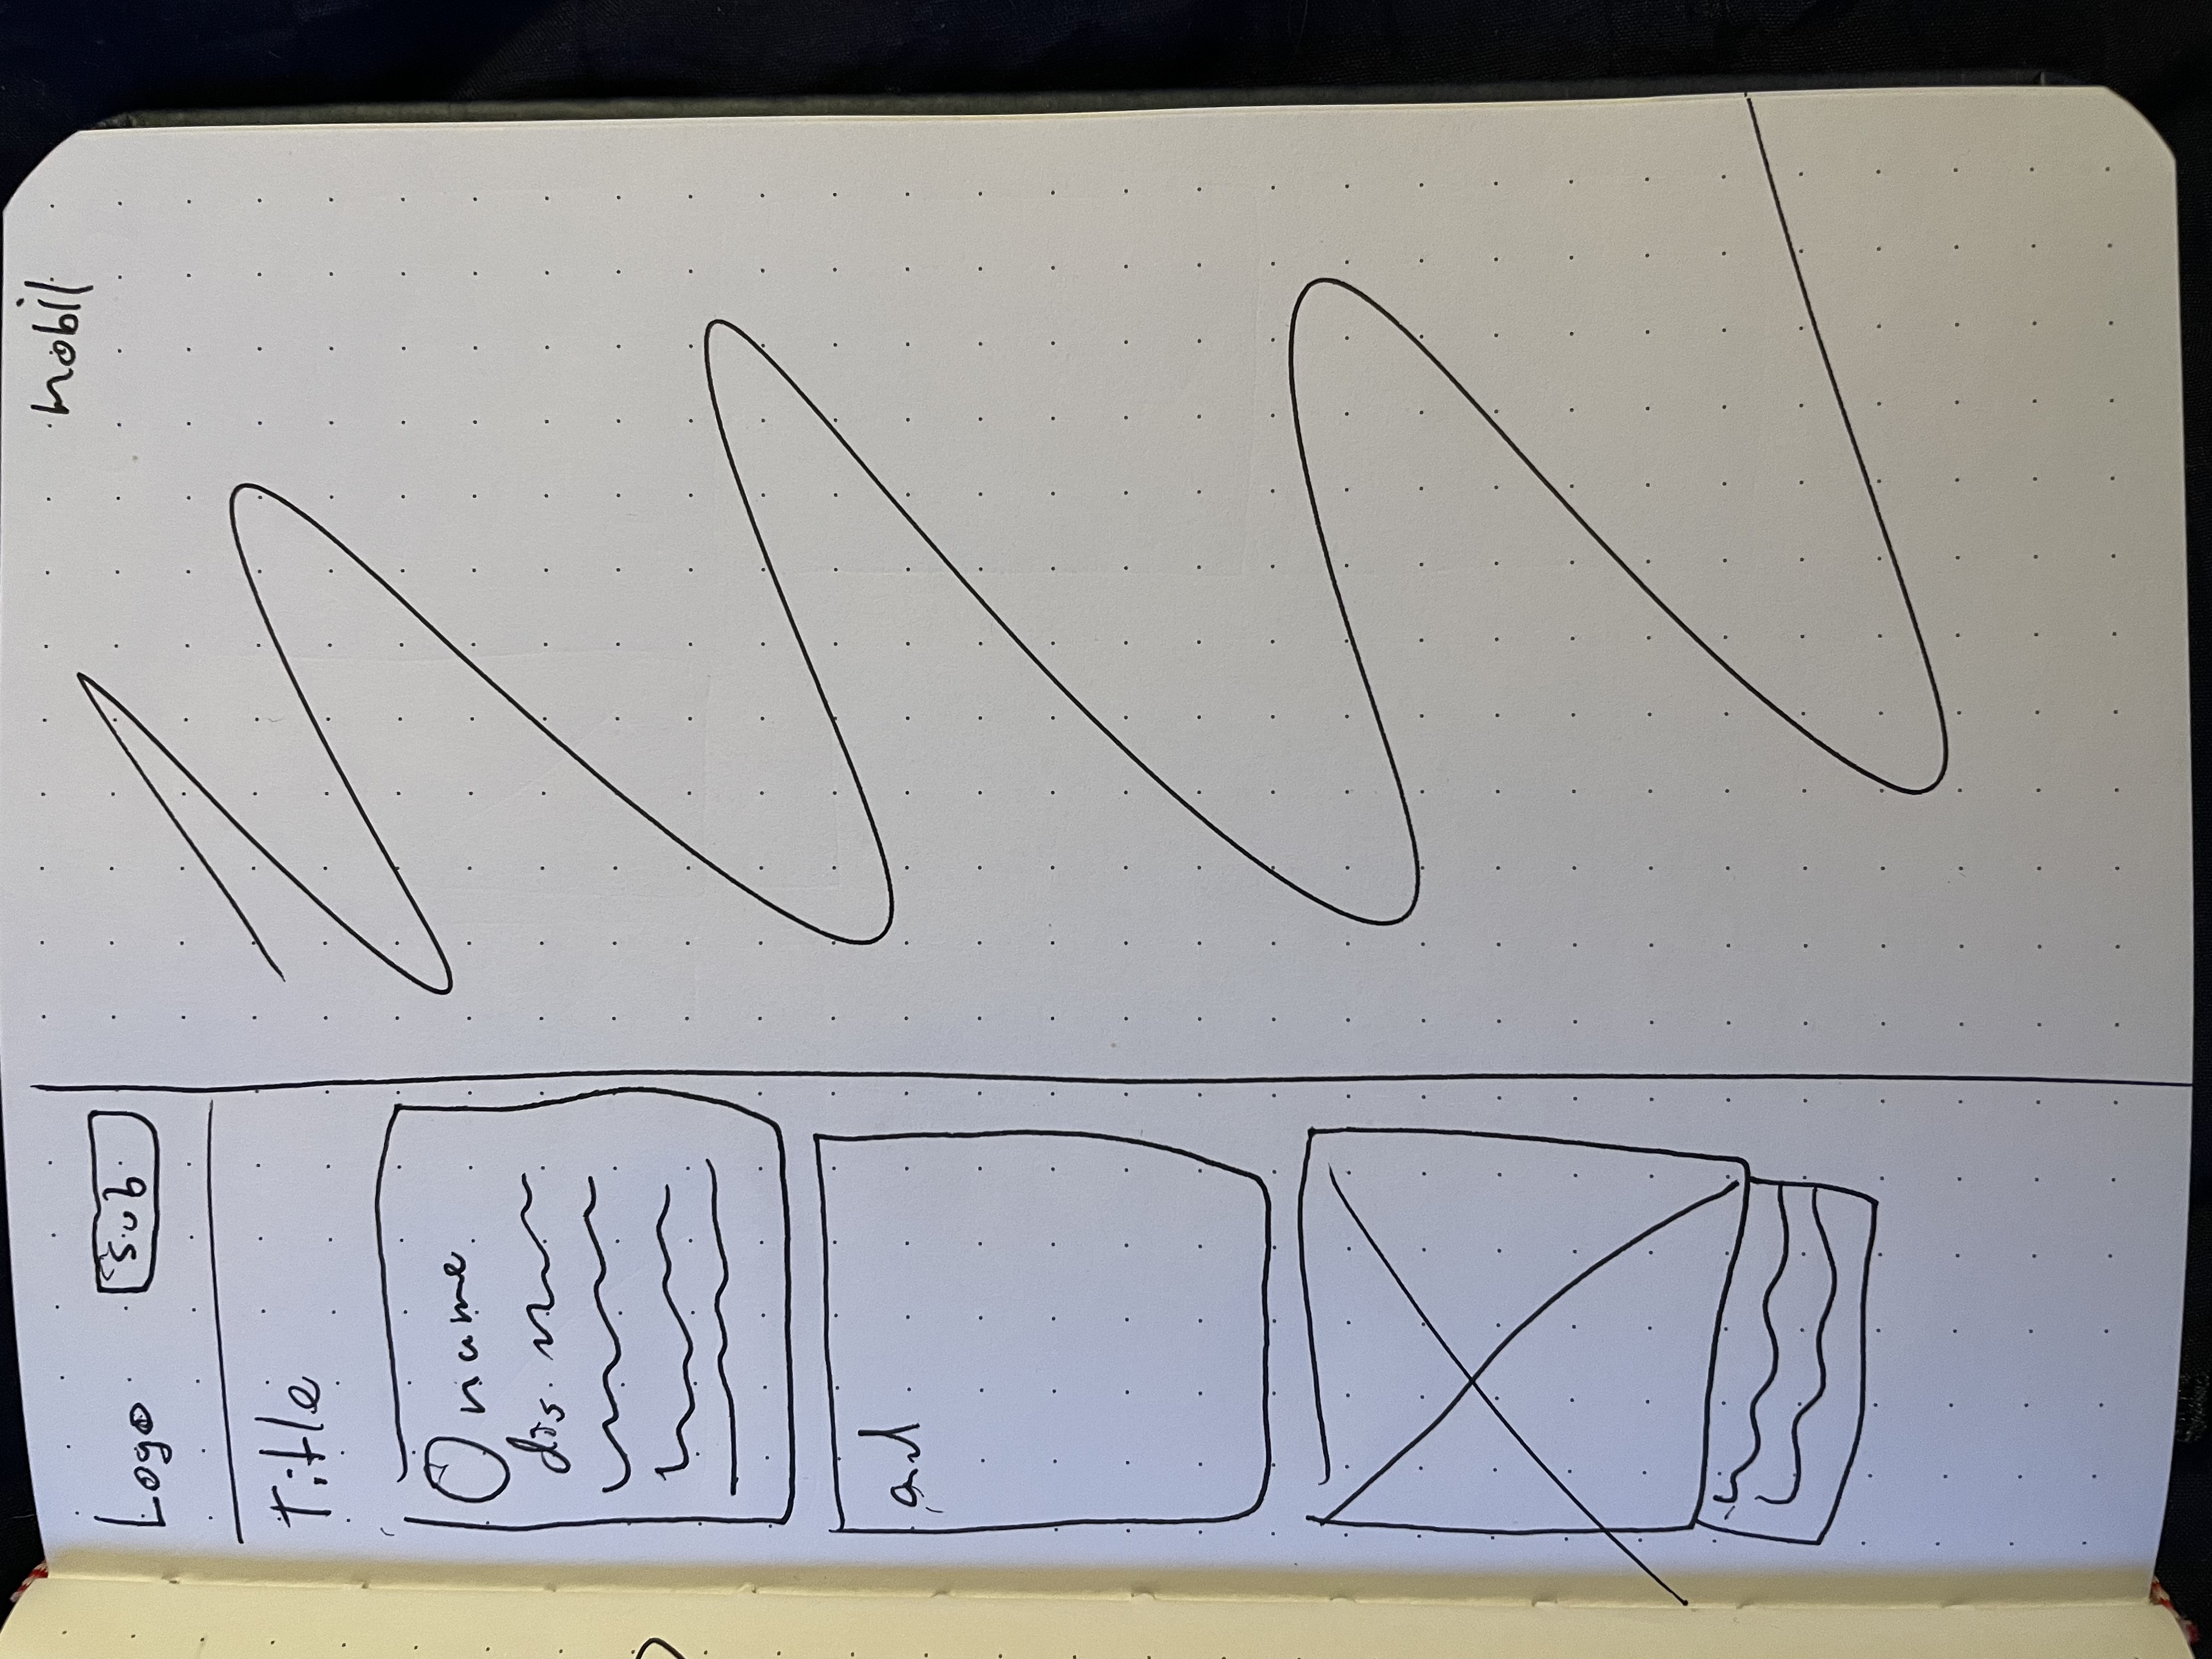 mobil
Logo
Sub
Title
name
dis.
ad